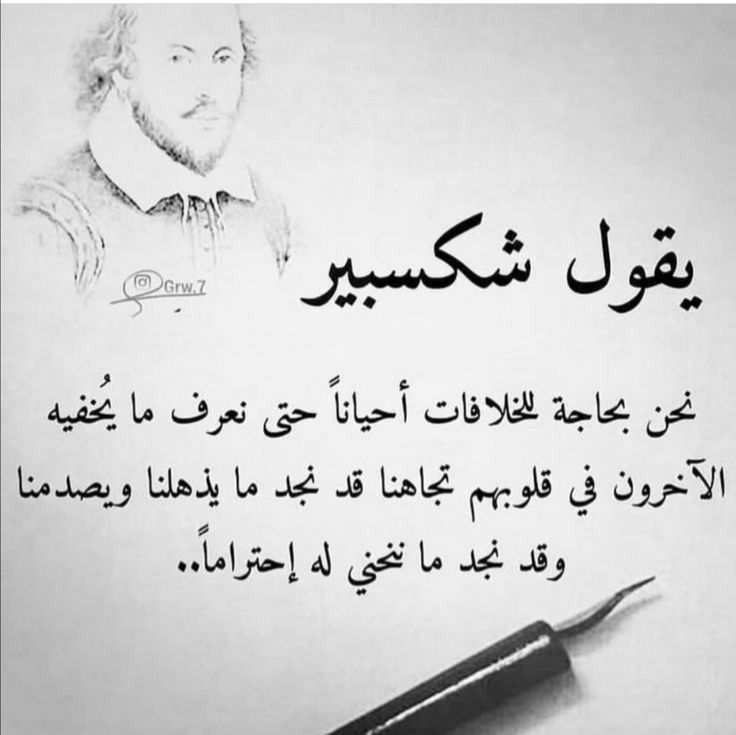 Grw.7
يقول شكسبير
نحن بحاجة للخلافات أحياناً حتى نعرف ما يُخفيه
الآخرون في قلوبهم تجاهنا قد نجد ما يذهلنا ويصدمنا
وقد نجد ما ننحني له إحتراماً..